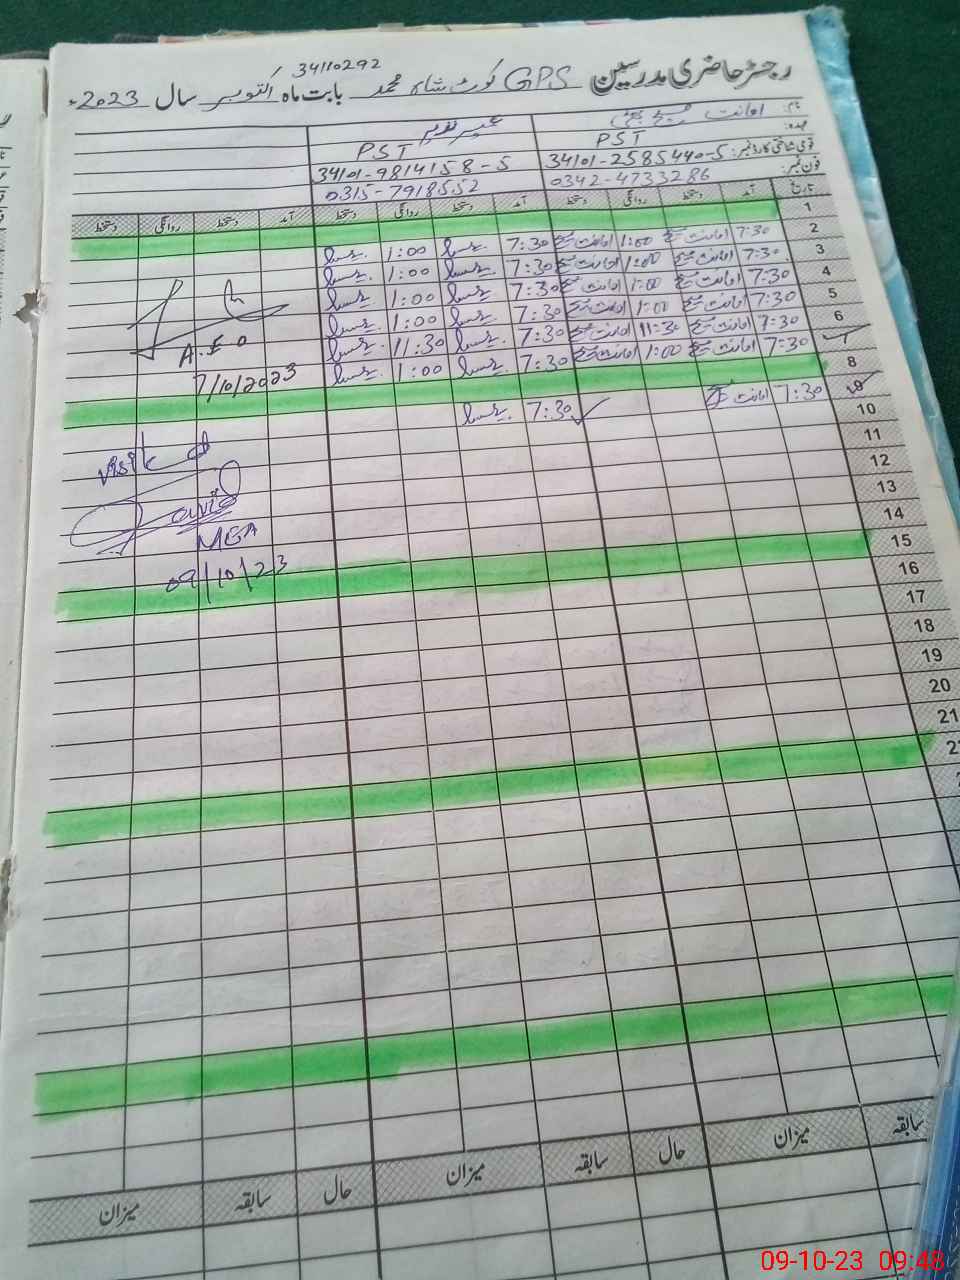 34110292
رجسٹر حاضری مدرسین GPS کوٹ شاہ محمد بابت ماہ اکتوبر سال 2023ء
نام: امانت مسیح
عہدہ: PST PST
قومی شناختی کارڈ نمبر: 34101-2585440-5 34101-9814158-5
فون نمبر: 0342-4733286 0315-7918552
تاریخ آمد دستخط روانگی دستخط آمد دستخط روانگی دستخط آمد دستخط روانگی دستخط
1
2 7:30 امانت مسیح 1:00 امانت مسیح 7:30 1:00
3 7:30 امانت مسیح 1:00 امانت مسیح 7:30 1:00
4 7:30 امانت مسیح 1:00 امانت مسیح 7:30 1:00
5 7:30 امانت مسیح 1:00 امانت مسیح 7:30 1:00
6 7:30 امانت مسیح 11:30 امانت مسیح 7:30 11:30
7 7:30 امانت مسیح 1:00 امانت مسیح 7:30 1:00
A.E.O
7/10/2023
8
9 7:30 امانت مسیح 7:30
10
visited
Javid
MEA
09/10/23
11
12
13
14
15
16
17
18
19
20
21
سابقہ میزان حال سابقہ میزان حال سابقہ میزان
09-10-23 09:48